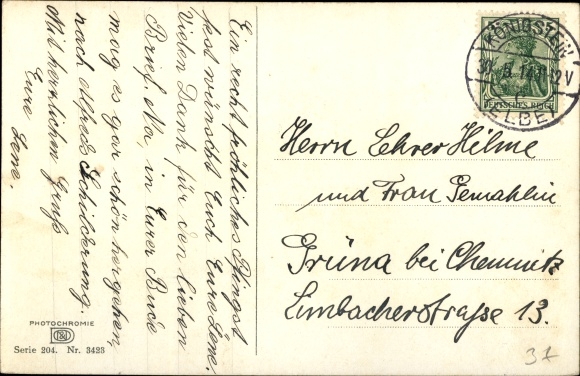 Ein recht fröhliches Pfingst
fest wünscht Euch Eure Lene.
Vielen Dank für den lieben
Brief. Na, in Eurer Bude
mag es gar schön hergehen,
nach Alfreds Schilderung.
Mit herzlichem Gruß
Eure Lene.
KÖNIGSTEIN
30.5.14.11-12V
(ELBE)
DEUTSCHES REICH
Herrn Lehrer Hilme
und Frau Gemahlin
Grüna bei Chemnitz
Limbacherstraße 13.
PHOTOCHROMIE
Serie 204. Nr. 3423
37